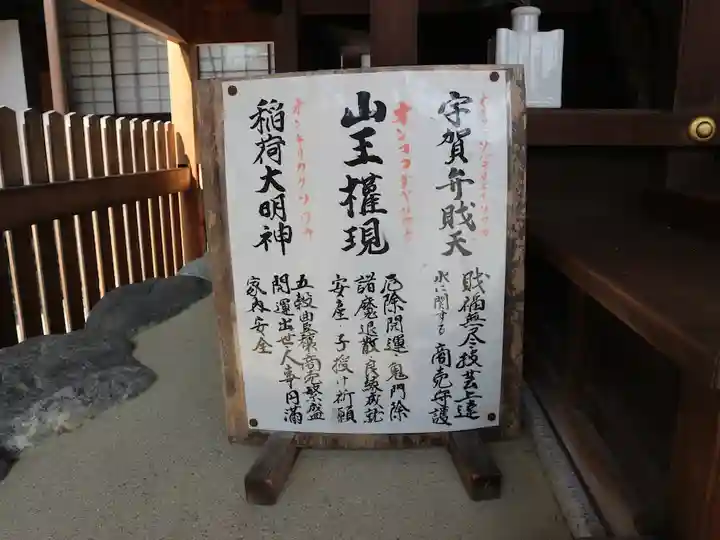 宇賀弁賎天
財福無尽技芸上達
水に関する商売守護
山王權現
厄除開運鬼門除
諸魔退散良縁成就
安産・子授け祈願
稲荷大明神
五穀由農穣商売繁盛
開運出世人事円満
家内安全